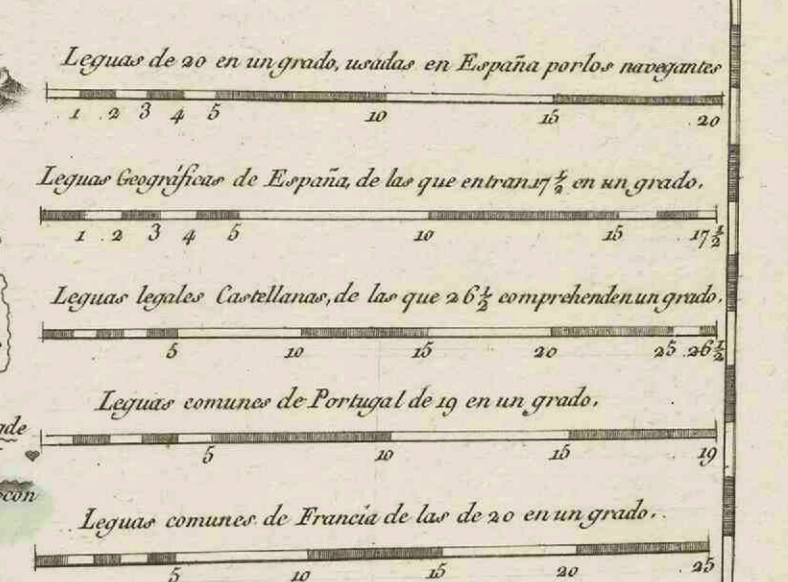 Leguas de 20 en un grado, usadas en España por los navegantes
1 2 3 4 5 10 15 20
Leguas Geográficas de España, de las que entran 17 1/2 en un grado.
1 2 3 4 5 10 15 17 1/2
Leguas legales Castellanas, de las que 26 1/2 comprehenden un grado.
5 10 15 20 25 26 1/2
Leguas comunes de Portugal de 19 en un grado.
gde
5 10 15 19
ocon
Leguas comunes de Francia de las de 20 en un grado.
5 10 15 20 25